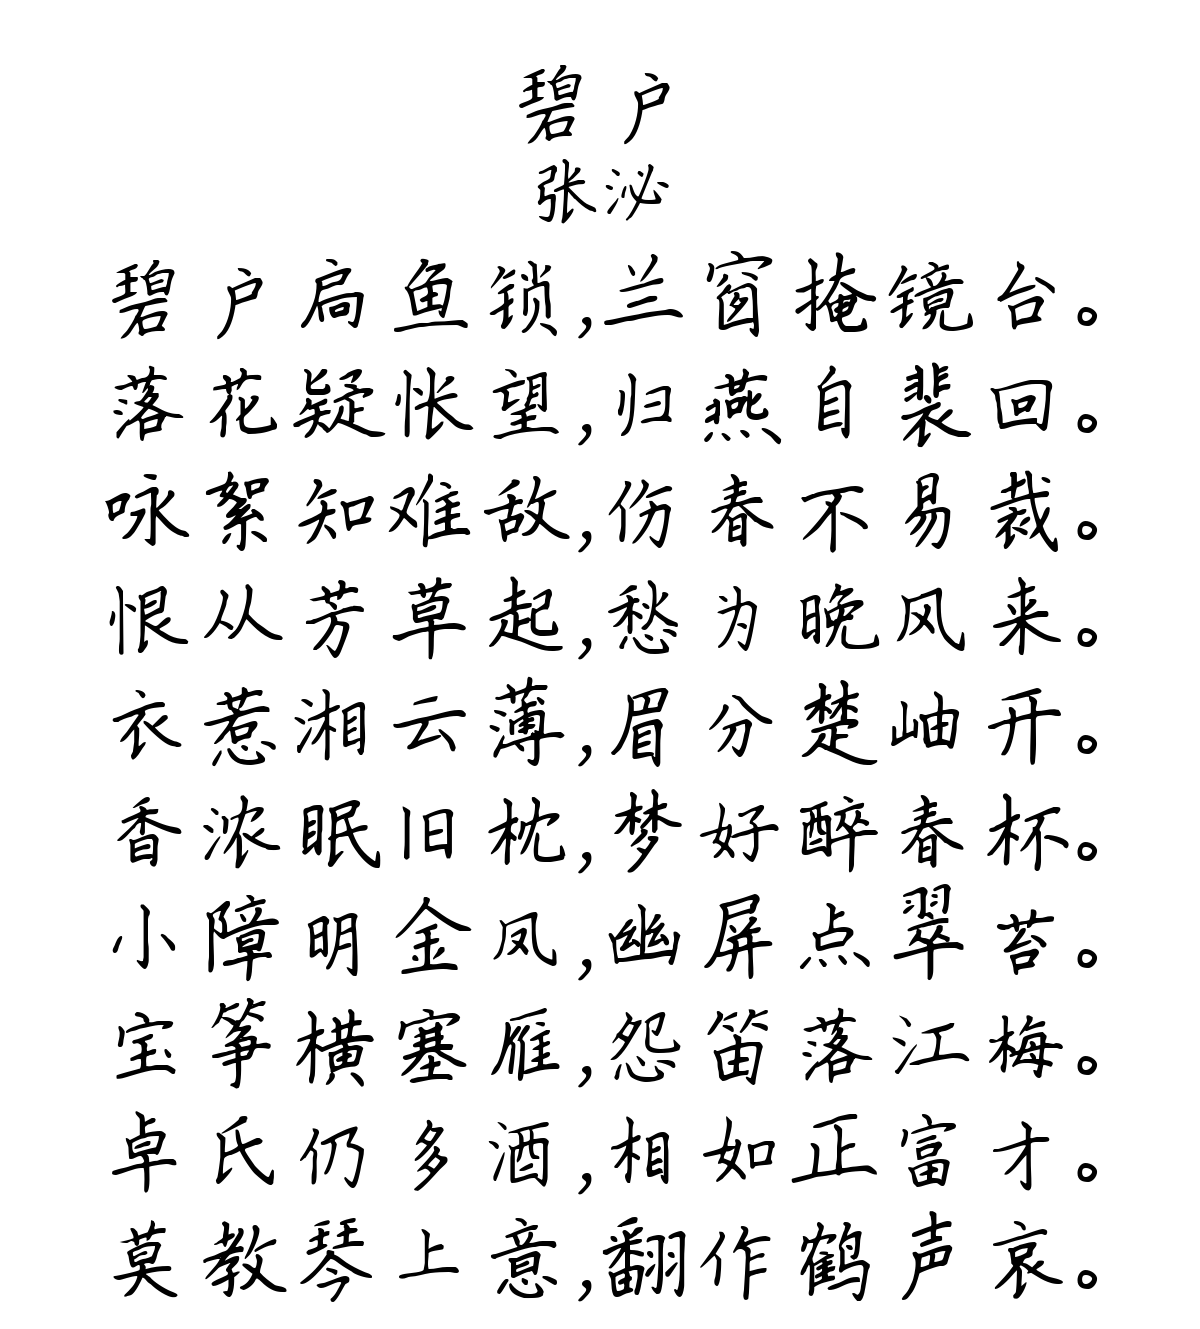 碧户
张泌
碧户扃鱼锁,兰窗掩镜台。
落花疑怅望,归燕自裴回。
咏絮知难敌,伤春不易裁。
恨从芳草起,愁为晚风来。
衣惹湘云薄,眉分楚岫开。
香浓眠旧枕,梦好醉春杯。
小障明金凤,幽屏点翠苔。
宝筝横塞雁,怨笛落江梅。
卓氏仍多酒,相如正富才。
莫教琴上意,翻作鹤声哀。